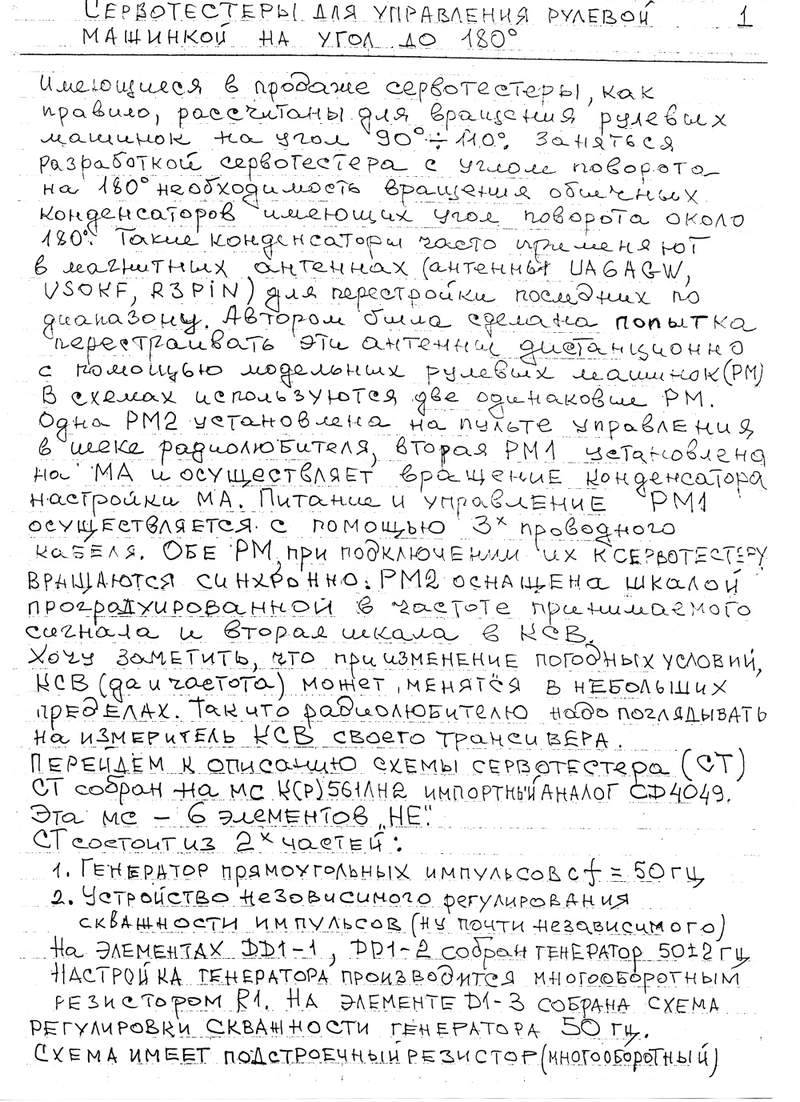 СЕРВОТЕСТЕРЫ ДЛЯ УПРАВЛЕНИЯ РУЛЕВОЙ 1
МАШИНКОЙ НА УГОЛ ДО 180°
Имеющиеся в продаже сервотестеры, как
правило, рассчитаны для вращения рулевых
машинок на угол 90°÷110°. Заняться
разработкой сервотестера с углом поворота
на 180° необходимость вращения обычных
конденсаторов имеющих угол поворота около
180°. Такие конденсаторы часто применяют
в магнитных антеннах (антенны UA6AGW,
US0KF, R3PiN) для перестройки последних по
диапазону. Автором была сделана попытка
перестраивать эти антенны дистанционно
с помощью модельных рулевых машинок (РМ)
В схемах используются две одинаковые РМ.
Одна РМ2 установлена на пульте управления
в шеке радиолюбителя, вторая РМ1 установлена
на МА и осуществляет вращение конденсатора
настройки МА. Питание и управление РМ1
осуществляется с помощью 3х проводного
кабеля. ОБЕ РМ, при подключении их к СЕРВОТЕСТЕРУ
ВРАЩАЮТСЯ СИНХРОННО. РМ2 ОСНАЩЕНА ШКАЛОЙ
проградуированной в частоте принимаемого
сигнала и вторая шкала в КСВ.
Хочу ЗАМЕТИТЬ, что при ИЗМЕНЕНИЕ ПОГОДНЫХ УСЛОВИЙ,
КСВ (да и частота) может МЕНЯТСЯ В НЕБОЛЬШИХ
ПРЕДЕЛАХ. Так что радиолюбителю надо поглядывать
на ИЗМЕРИТЕЛЬ КСВ своего трансиВЕРА.
ПЕРЕЙДЁМ К описанию СХЕМЫ СЕРВОТЕСТЕРА (СТ)
СТ собран на мс К(Р)561ЛН2 ИМПОРТНЫЙ АНАЛОГ CD4049.
Эта мс – 6 элементов „НЕ".
СТ состоит из 2х частей:
1. ГЕНЕРАТОР ПРЯМОУГОЛЬНЫХ ИМПУЛЬСОВ с f = 50 гц
2. Устройство независимого регулирования
СКВАЖНОСТИ ИМПУЛЬСОВ (ну почти независимого)
На ЭЛЕМЕНТАХ DD1-1, DD1-2 собран ГЕНЕРАТОР 50±2 гц
НАСТРОЙКА ГЕНЕРАТОРА ПРОИЗВОДИТСЯ МНОГООБОРОТНЫМ
РЕЗИСТОРОМ R1. НА ЭЛЕМЕНТЕ D1-3 СОБРАНА СХЕМА
РЕГУЛИРОВКИ СКВАЖНОСТИ ГЕНЕРАТОРА 50 гц.
СХЕМА ИМЕЕТ ПОДСТРОЕЧНЫЙ РЕЗИСТОР (МНОГООБОРОТНЫЙ)